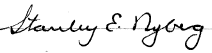 Stanley E. Nyberg